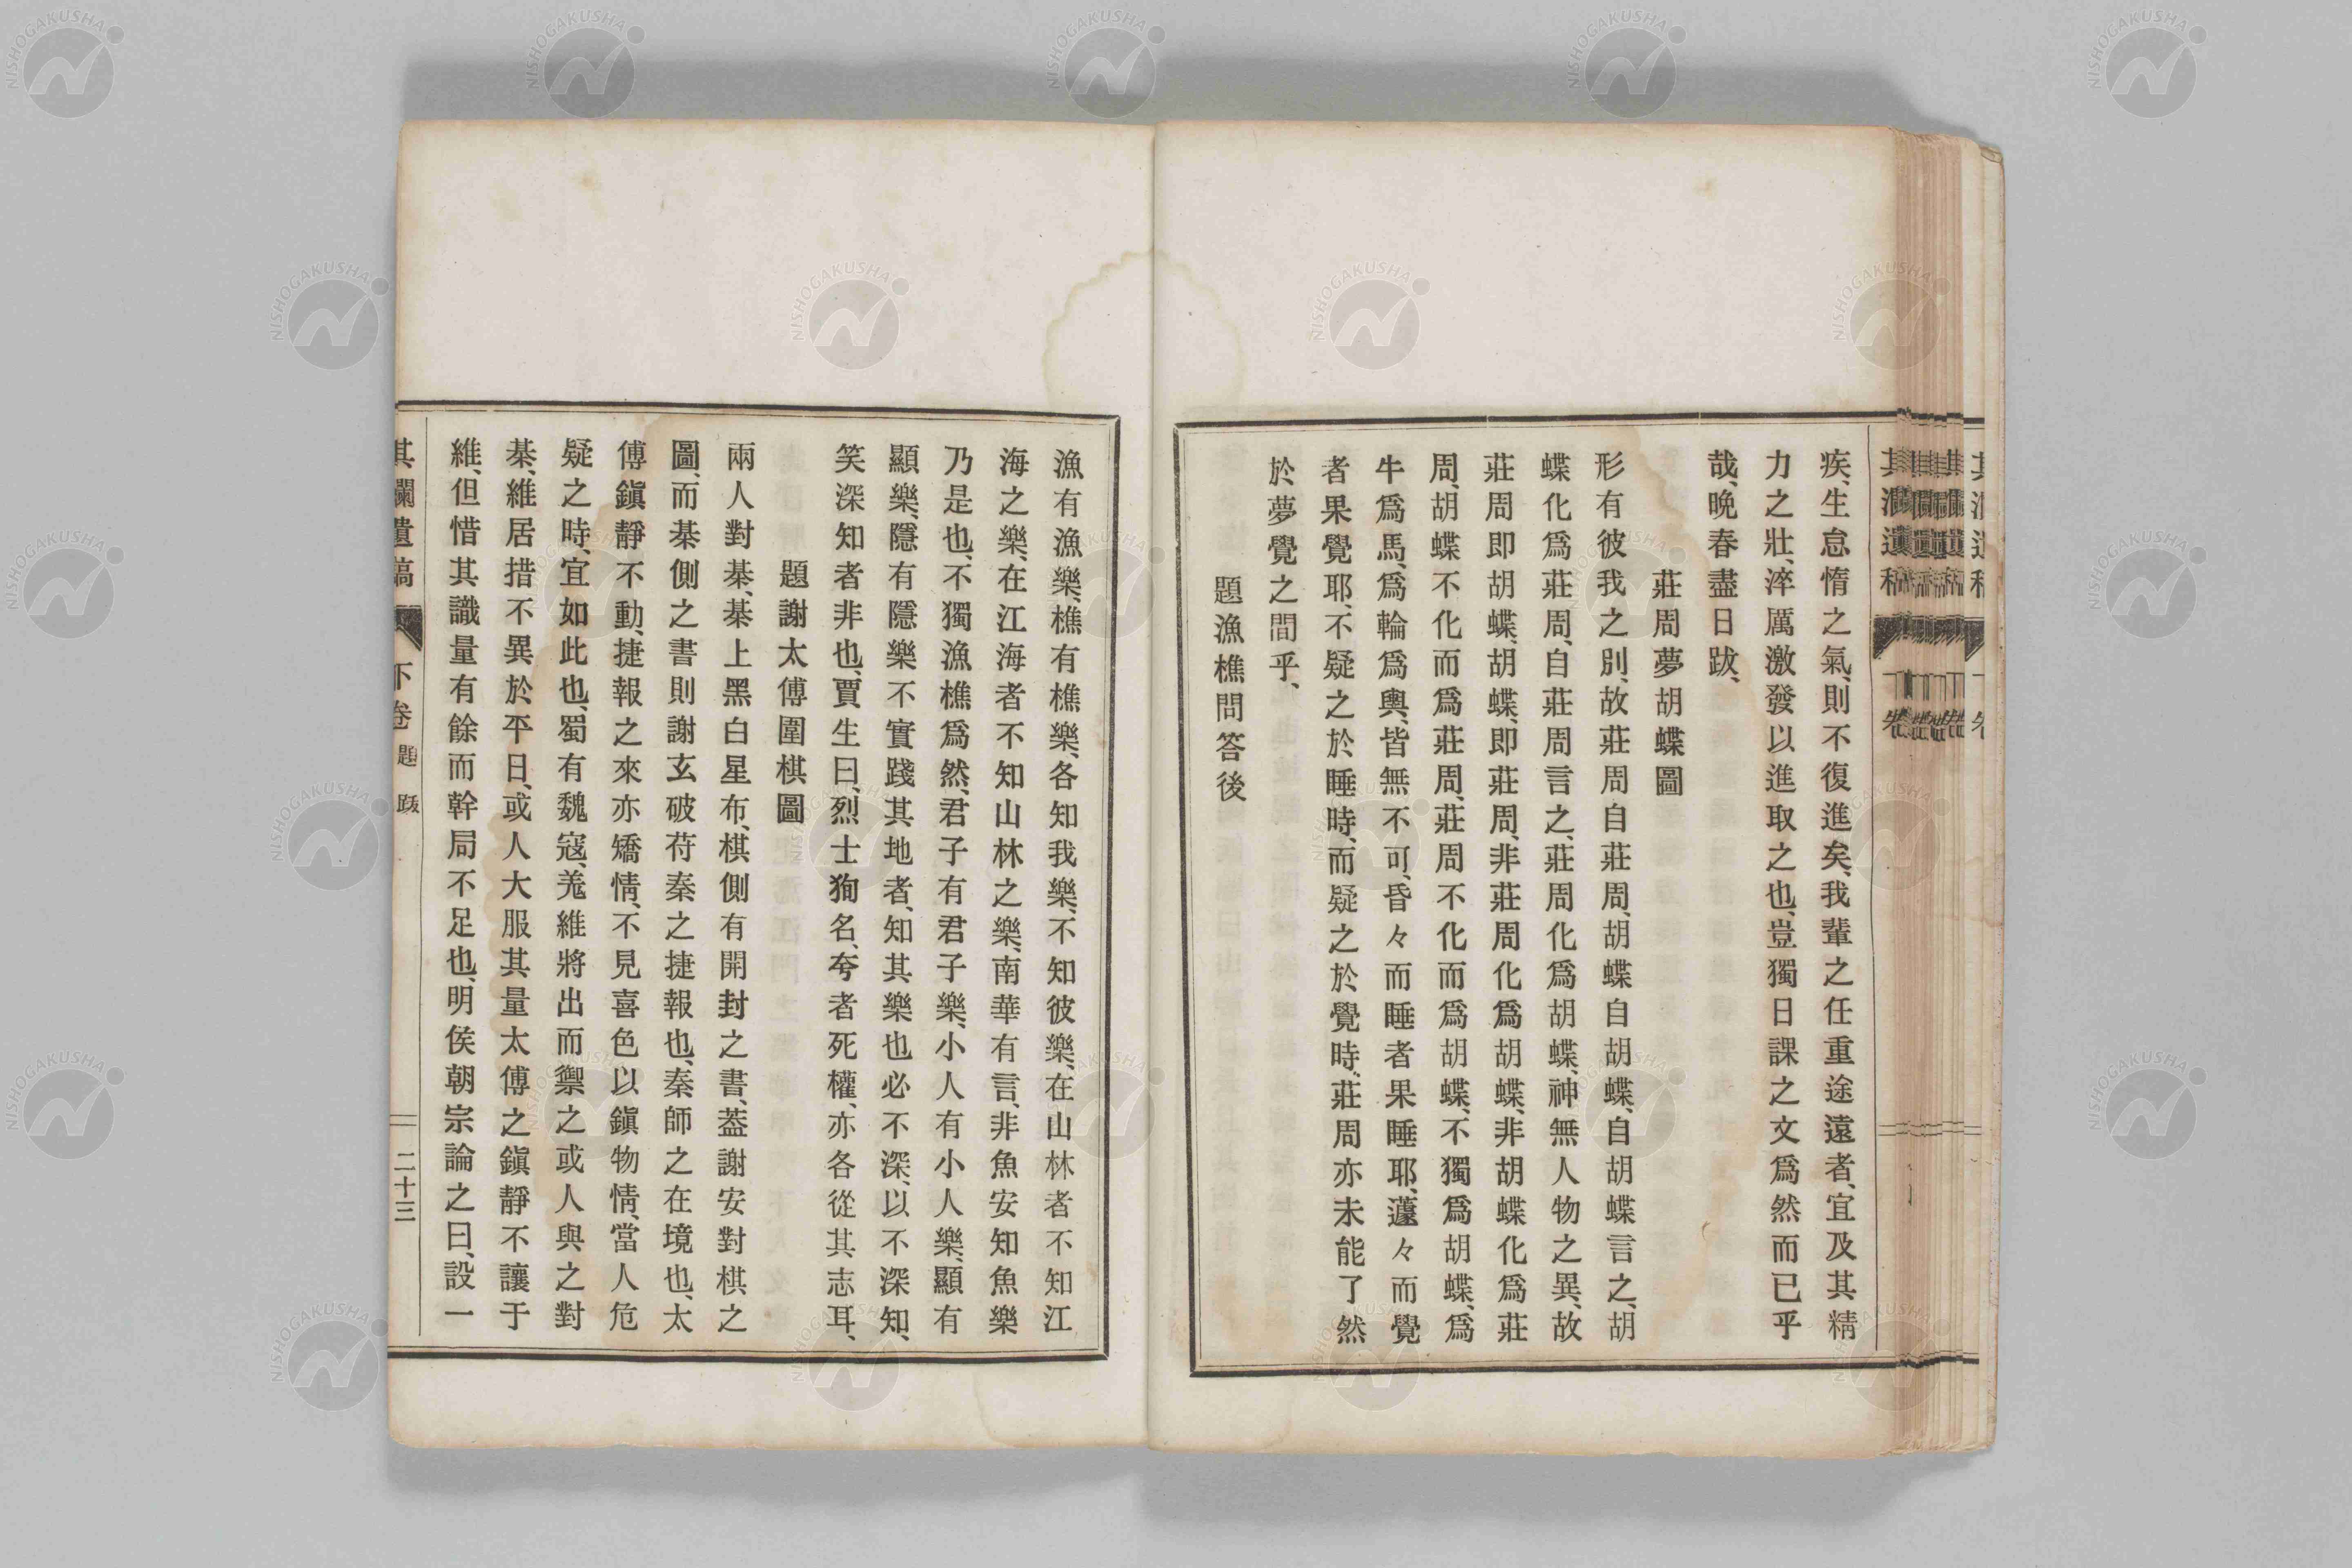 疾、生怠惰之氣、則不復進矣、我輩之任重途遠者、宜及其精
力之壯、淬厲激發以進取之也、豈獨日課之文爲然而已乎
哉、晩春盡日跋、
莊周夢胡蝶圖
形有彼我之別、故莊周自莊周、胡蝶自胡蝶、自胡蝶言之、胡
蝶化爲莊周、自莊周言之、莊周化爲胡蝶、神無人物之異、故
莊周即胡蝶、胡蝶、即莊周、非莊周化爲胡蝶、非胡蝶化爲莊
周、胡蝶不化而爲莊周、莊周不化而爲胡蝶、不獨爲胡蝶、爲
牛爲馬、爲輪爲輿、皆無不可、昏々而睡者果睡耶、蘧々而覺
者果覺耶、不疑之於睡時、而疑之於覺時、莊周亦未能了然
於夢覺之間乎、
題漁樵問答後
漁有漁樂、樵有樵樂、各知我樂、不知彼樂、在山林者不知江
海之樂、在江海者不知山林之樂、南華有言、非魚安知魚樂
乃是也、不獨漁樵爲然、君子有君子樂、小人有小人樂、顯有
顯樂、隱有隱樂不實踐其地者、知其樂也必不深、以不深知、
笑深知者非也、賈生曰、烈士狥名、夸者死權、亦各從其志耳、
題謝太傅圍棋圖
兩人對棊、棊上黑白星布、棋側有開封之書、蓋謝安對棋之
圖、而棊側之書則謝玄破苻秦之捷報也、秦師之在境也、太
傅鎭靜不動、捷報之來亦矯情、不見喜色以鎭物情、當人危
疑之時、宜如此也、蜀有魏寇、羗維將出而禦之或人與之對
棊、維居措不異於平日、或人大服其量太傅之鎭靜不讓于
維、但惜其識量有餘而幹局不足也、明侯朝宗論之曰、設一
其瀾遺稿 下卷 題跋 二十三
NISHOGAKUSHA